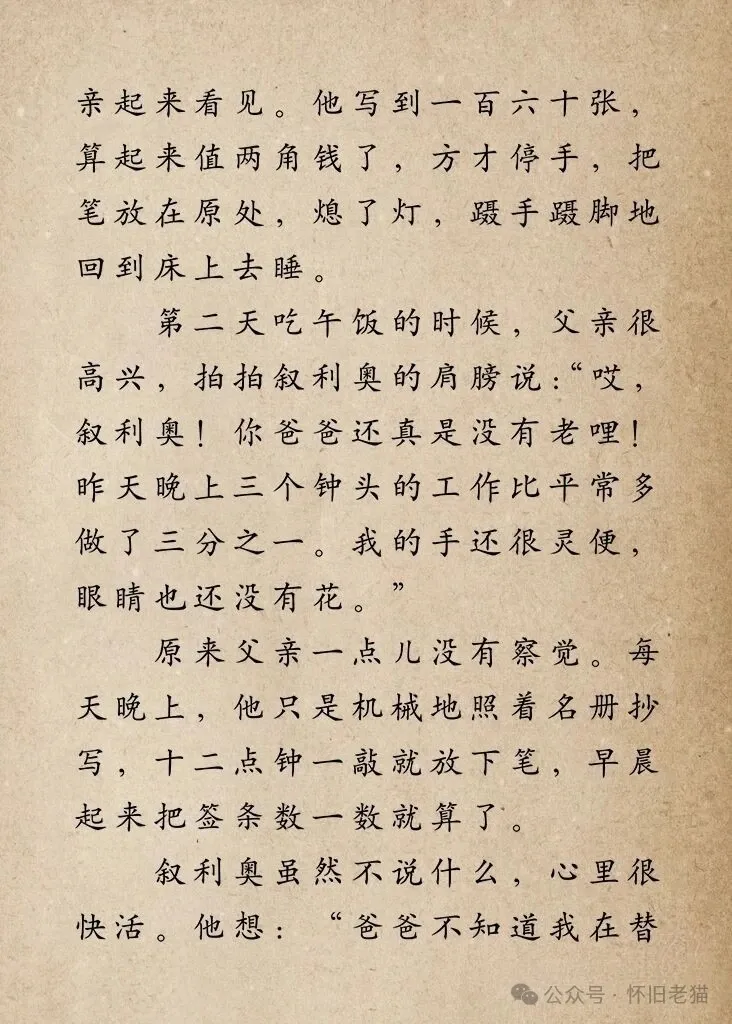 亲起来看见。他写到一百六十张，
算起来值两角钱了，方才停手，把
笔放在原处，熄了灯，蹑手蹑脚地
回到床上去睡。
第二天吃午饭的时候，父亲很
高兴，拍拍叙利奥的肩膀说：“哎，
叙利奥！你爸爸还真是没有老哩！
昨天晚上三个钟头的工作比平常多
做了三分之一。我的手还很灵便，
眼睛也还没有花。”
原来父亲一点儿没有察觉。每
天晚上，他只是机械地照着名册抄
写，十二点钟一敲就放下笔，早晨
起来把签条数一数就算了。
叙利奥虽然不说什么，心里很
快活。他想：“爸爸不知道我在替
公众号·怀旧老猫